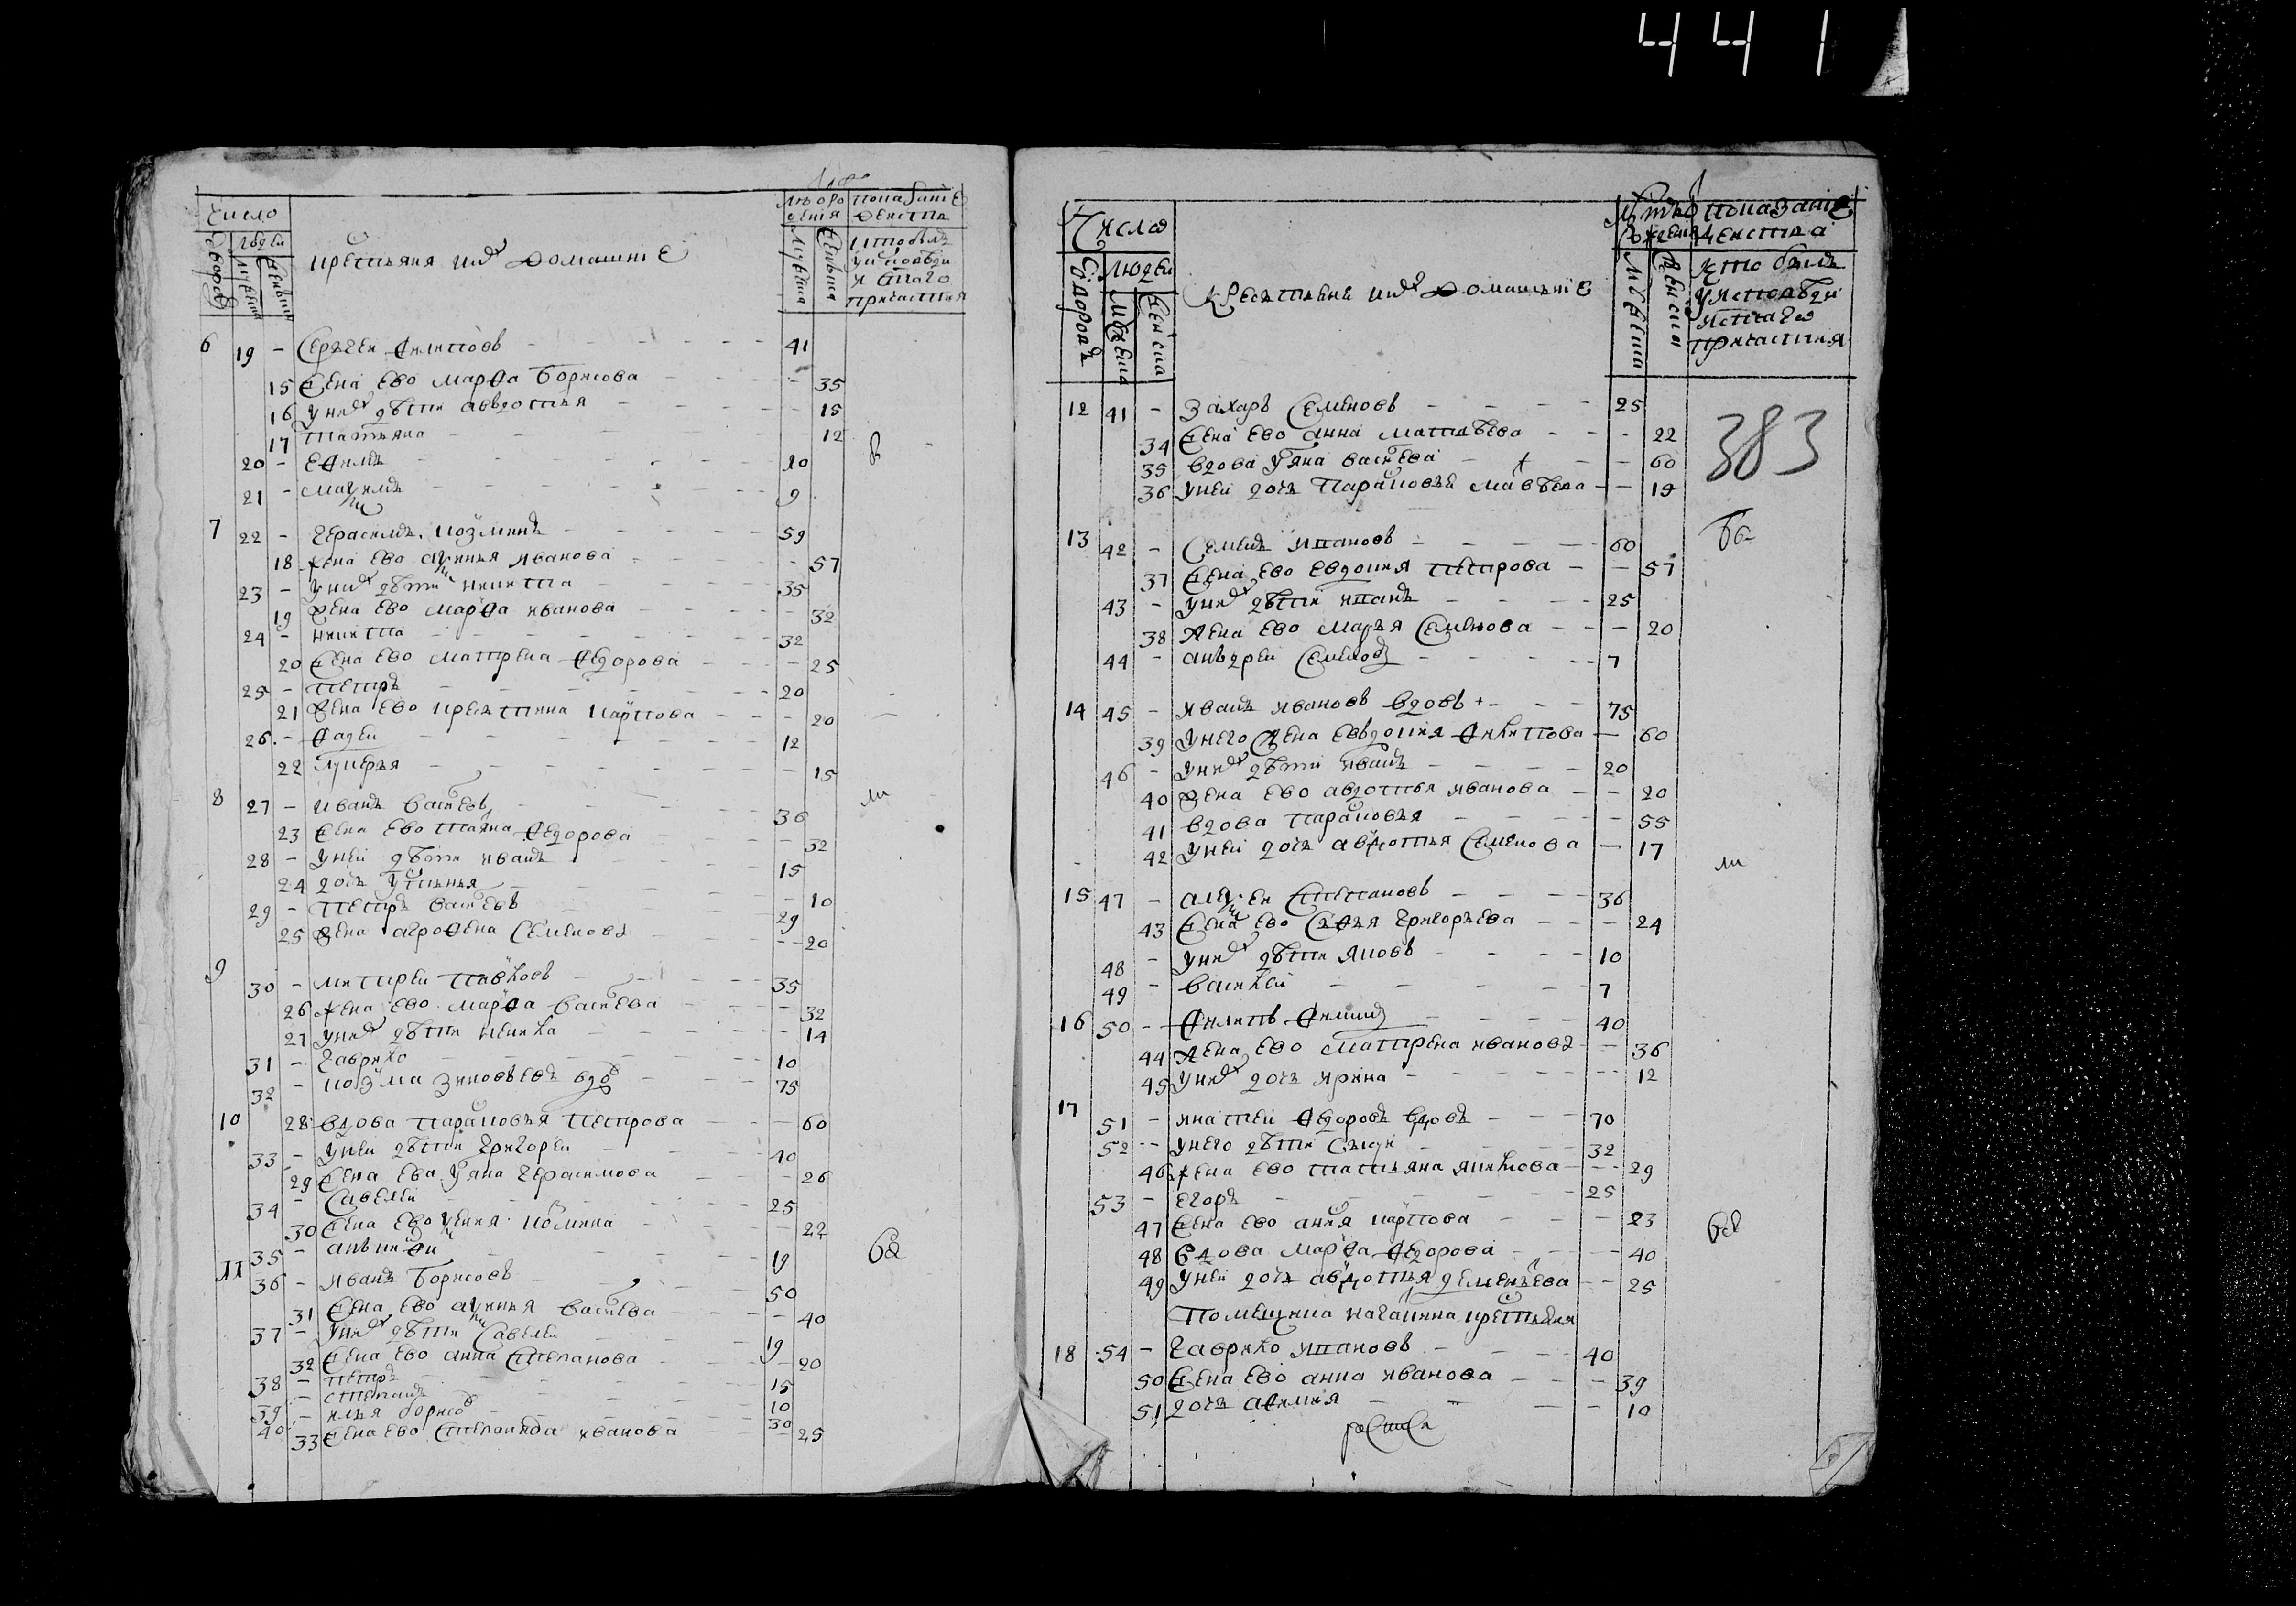 441
число
людей
дворовъ
мужеска
женска
крестьяня и ихъ домашние
лѣ оро
дения
мужеска
женска
показание
действа
кто былъ
у исповеди
и св таго
причастия
6 19 - Сергеи Филипов - 41
15 жена ево марфа Борисова - 35
16 у них дѣти авдотья - 15
17 татьяна - 12
20 - Ефимъ - 10
21 - маѯимъ - 9
7 22 - герасимъ козминъ - 59
18 жена ево аѯинья иванова - 57
23 - у них дѣти никита - 35
19 жена ево марфа иванова - 32
24 - никита - 32
20 жена ево матрена федорова - 25
25 - петръ - 20
21 жена ево крестина карпова - 20
26 - фадеи - 12
22 лукерья - 15
8 27 - иванъ васиевъ - 36
23 жена ево таяна федорова - 32
28 - у неи дѣти иванъ - 15
24 дочь устинья - 10
29 - петръ васиевъ - 29
25 жена агрофена Семенова - 20
9 30 - митрей павлов - 35
26 жена ево марфа васиева - 32
27 у них дѣти 14
31 - гаврило - 10
32 - козма зиновьевъ вдов - 75
10 28 вдова парасковья петрова - 60
33 - у неи дѣти григореи - 40
29 жена ева уляна герасимова - 26
34 - Савелеи - 25
30 жена ево 22
35 - 19
11 36 - иванъ Борисов - 50
31 жена ево аѯинья васиева - 40
37 - у них дѣти Савелеи - 19
32 жена ево анна Степанова - 20
38 - петръ - 15
39 - степанъ - 10
40 - илья борисов - 30
33 жена ево Степанида иванова - 25
Число
людеи
дворовъ
мужеска
женска
крестьяне и ихъ домашние
лѣтъ о
рождения
мужеска
женска
показание
действа
кто былъ
у исповѣди
и св таго
причастия
383
12 41 - Захаръ Семеновъ - 25
34 жена ево анна матвѣева - 22
35 вдова уляна васиева - 60
36 у неи дочь Парасковья мавѣева - 19
13 42 - Семенъ ипатов - 60
37 жена ево евдокия петрова - 57
43 - у них дѣти ипатъ - 25
38 жена ево марья Семенова - 20
44 - андреи Семенов - 7
14 45 - иванъ иванов вдовъ + - 75
39 у него жена евдокия филипова - 60
46 - у них дѣти иванъ - 20
40 жена ево авдотья иванова - 20
41 вдова парасковья - 55
42 у неи дочь авдотья Семенова - 17
15 47 - алеѯеи Степановъ - 36
43 жена ево Софья григорьева - 24
48 - у них дѣти яковъ - 10
49 - василеи - 7
16 50 - филипъ 40
44 жена ево матрена иванова - 36
45 у них дочь ирина - 12
17 51 - игнатеи федоровъ вдовъ - 70
52 - у него дѣти 32
46 жена ево татьяна 29
53 - егоръ - 25
47 жена ево анна карпова - 23
48 вдова марфа федорова - 40
49 у неи дочь авдотья деменьтева - 25
Помещика нагаткина крестьяня
18 54 - гаврило ипатовъ - 40
50 жена ево анна иванова - 39
51 дочь афимия - 10